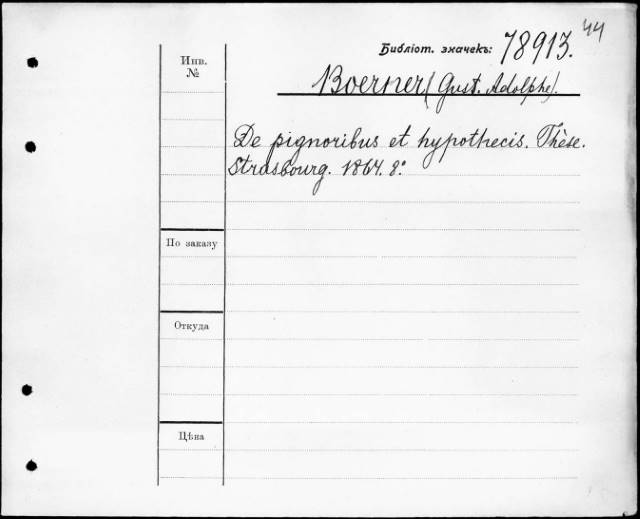 44
Библіот. значекъ: 78913.
Инв.
№
Boerner (Gust. Adolphe).
De pignoribus et hypothecis. Thèse.
Strasbourg. 1864. 8º
По заказу
Откуда
Цѣна